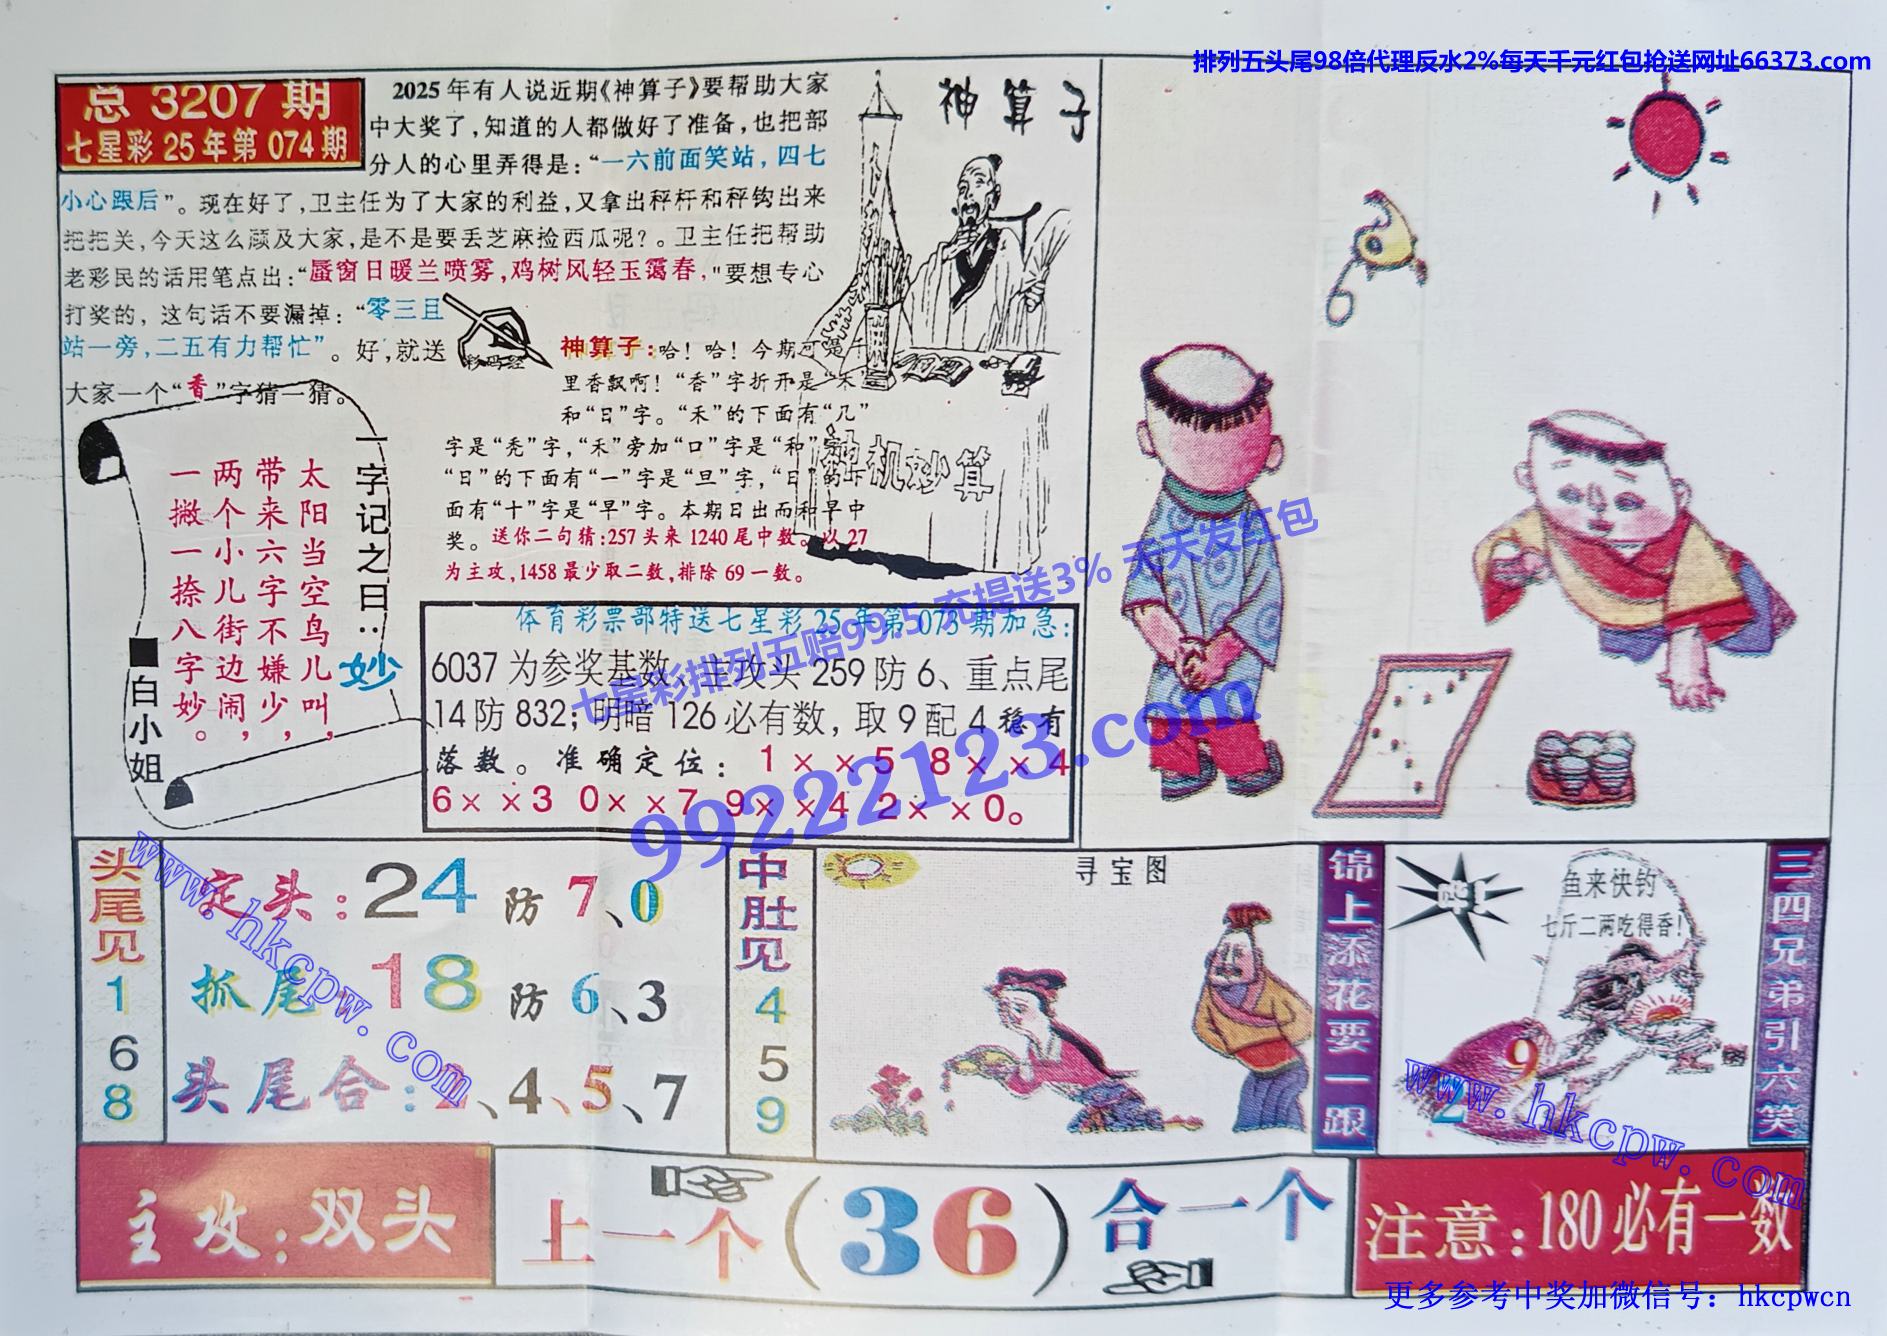 排列五头尾98倍代理反水2%每天千元红包抢送网址66373.com
总 3207 期
七星彩 25 年第 074 期
2025 年有人说近期《神算子》要帮助大家
中大奖了，知道的人都做好了准备，也把部
分人的心里弄得是：“一六前面笑站，四七
小心跟后”。现在好了，卫主任为了大家的利益，又拿出秤杆和秤钩出来
把把关，今天这么顾及大家，是不是要丢芝麻捡西瓜呢？。卫主任把帮助
老彩民的话用笔点出：“蜃窗日暖兰喷雾，鸡树风轻玉霭春，"要想专心
打奖的，这句话不要漏掉：“零三且
站一旁，二五有力帮忙”。好，就送
大家一个“香”字猜一猜。
神算子
神算子：哈！哈！今期可是千
里香飘啊！“香”字折开是“禾”
和“日”字。“禾”的下面有“几”
字是“秃”字，“禾”旁加“口”字是“种”字
“日”的下面有“一”字是“旦”字，“日”的下
面有“十”字是“早”字。本期日出而种早中
奖。送你二句猜：257 头来 1240 尾中数。以 27
为主攻，1458 最少取二数，排除 69 一数。
神机妙算
一字记之曰：妙
太阳当空鸟儿叫，
带来六字不嫌少，
两个小儿街边闹，
一撇一捺八字妙。
■白小姐
体育彩票部特送七星彩 25 年第 073 期加急：
6037 为参奖基数、主攻头 259 防 6、重点尾
14 防 832；明暗 126 必有数，取 9 配 4 稳有
落数。准确定位：1××5 8××4
6××3 0××7 9××4 2××0。
七星彩排列五赔99.5 充提送3% 天天发红包
99222123.com
头尾见
1
6
8
定头：24 防 7、0
抓尾：18 防 6、3
头尾合：2、4、5、7
www.hkcpw.com
中肚见
4
5
9
寻宝图
锦上添花要一跟
鱼来快钓
七斤二两吃得香！
9
2
三四兄弟引六笑
www.hkcpw.com
主攻：双头
上一个（36）合一个
注意：180 必有一数
更多参考中奖加微信号：hkcpwcn